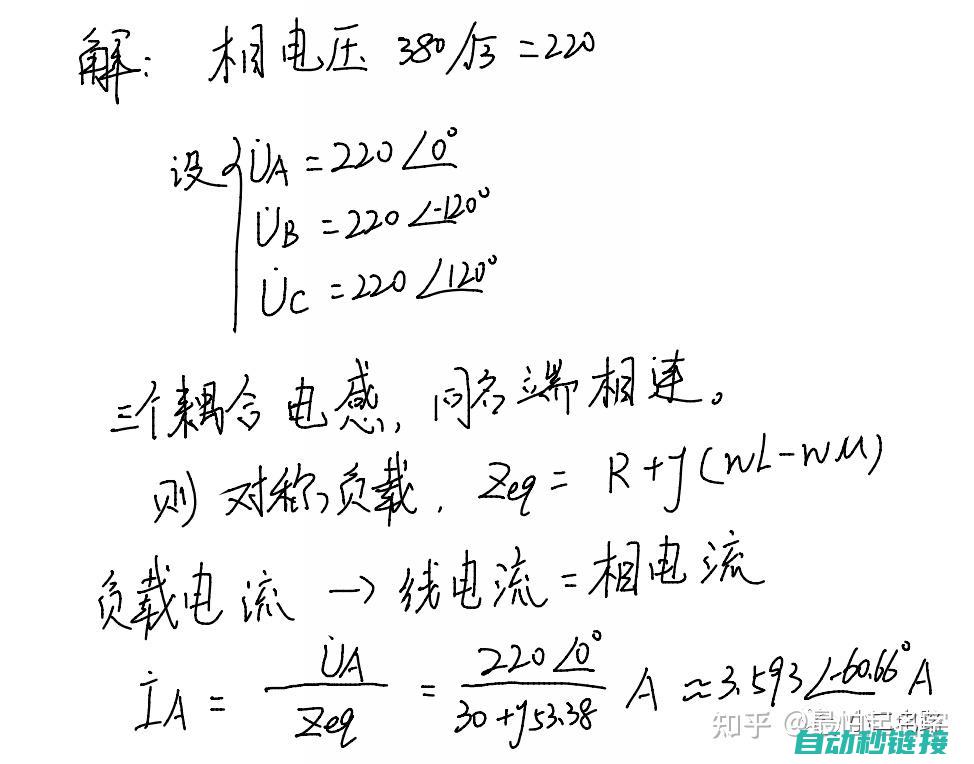 解: 相电压 380/√3 = 220
设 { U̇A = 220∠0°
U̇B = 220∠-120°
U̇C = 220∠120°
三个耦合电感, 同名端相连。
则对称负载, Zeq = R+j(wL-wM)
负载电流 → 线电流 = 相电流
İA = U̇A/Zeq = 220∠0°/30+j53.38 A ≈ 3.593∠-60.66° A
知乎 @最怕起名字
自动秒链接